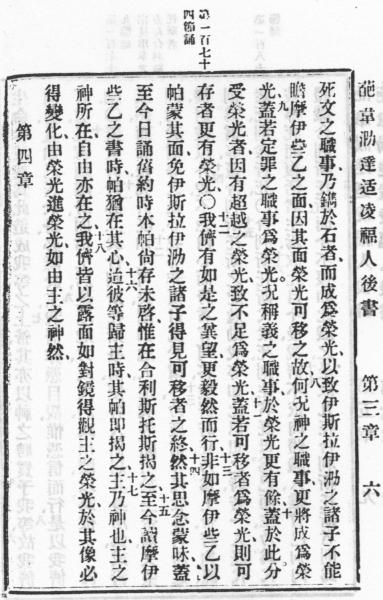 適凌福人後書 第三章 六
第一百七十
四節誦
死文之職事、乃鐫於石者、而成爲榮光、以致伊斯拉伊泐之諸子不能
瞻摩伊些乙之面、因其面榮光可移之故、何況神之職事、更將成爲榮
光、蓋若定罪之職事爲榮光、況稱義之職事、於榮光更有餘、蓋於此分
受榮光者、因有超越之榮光、致不足爲榮光、蓋若可移者爲榮光、則可
存者更有榮光、〇我儕有如是之冀望、更毅然而行、非如摩伊些乙以
帕蒙其面、免伊斯拉伊泐之諸子得見可移者之終、然其思念蒙昧、蓋
至今日誦舊約時、本帕尙存未啓、惟在合利斯托斯揭之、至今讀摩伊
些乙之書時、帕猶在其心、迨彼等歸主時、其帕卽揭之、主乃神也、主之
神所在、自由亦在之、我儕皆以露面如對鏡得觀主之榮光、於其像必
得變化、由榮光進榮光、如由主之神然、
第四章